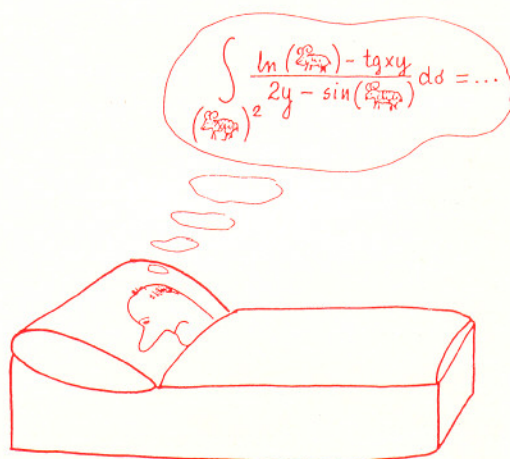 ∫ ln ( ) - tg xy
2y - sin ( ) dσ = ...
( )²